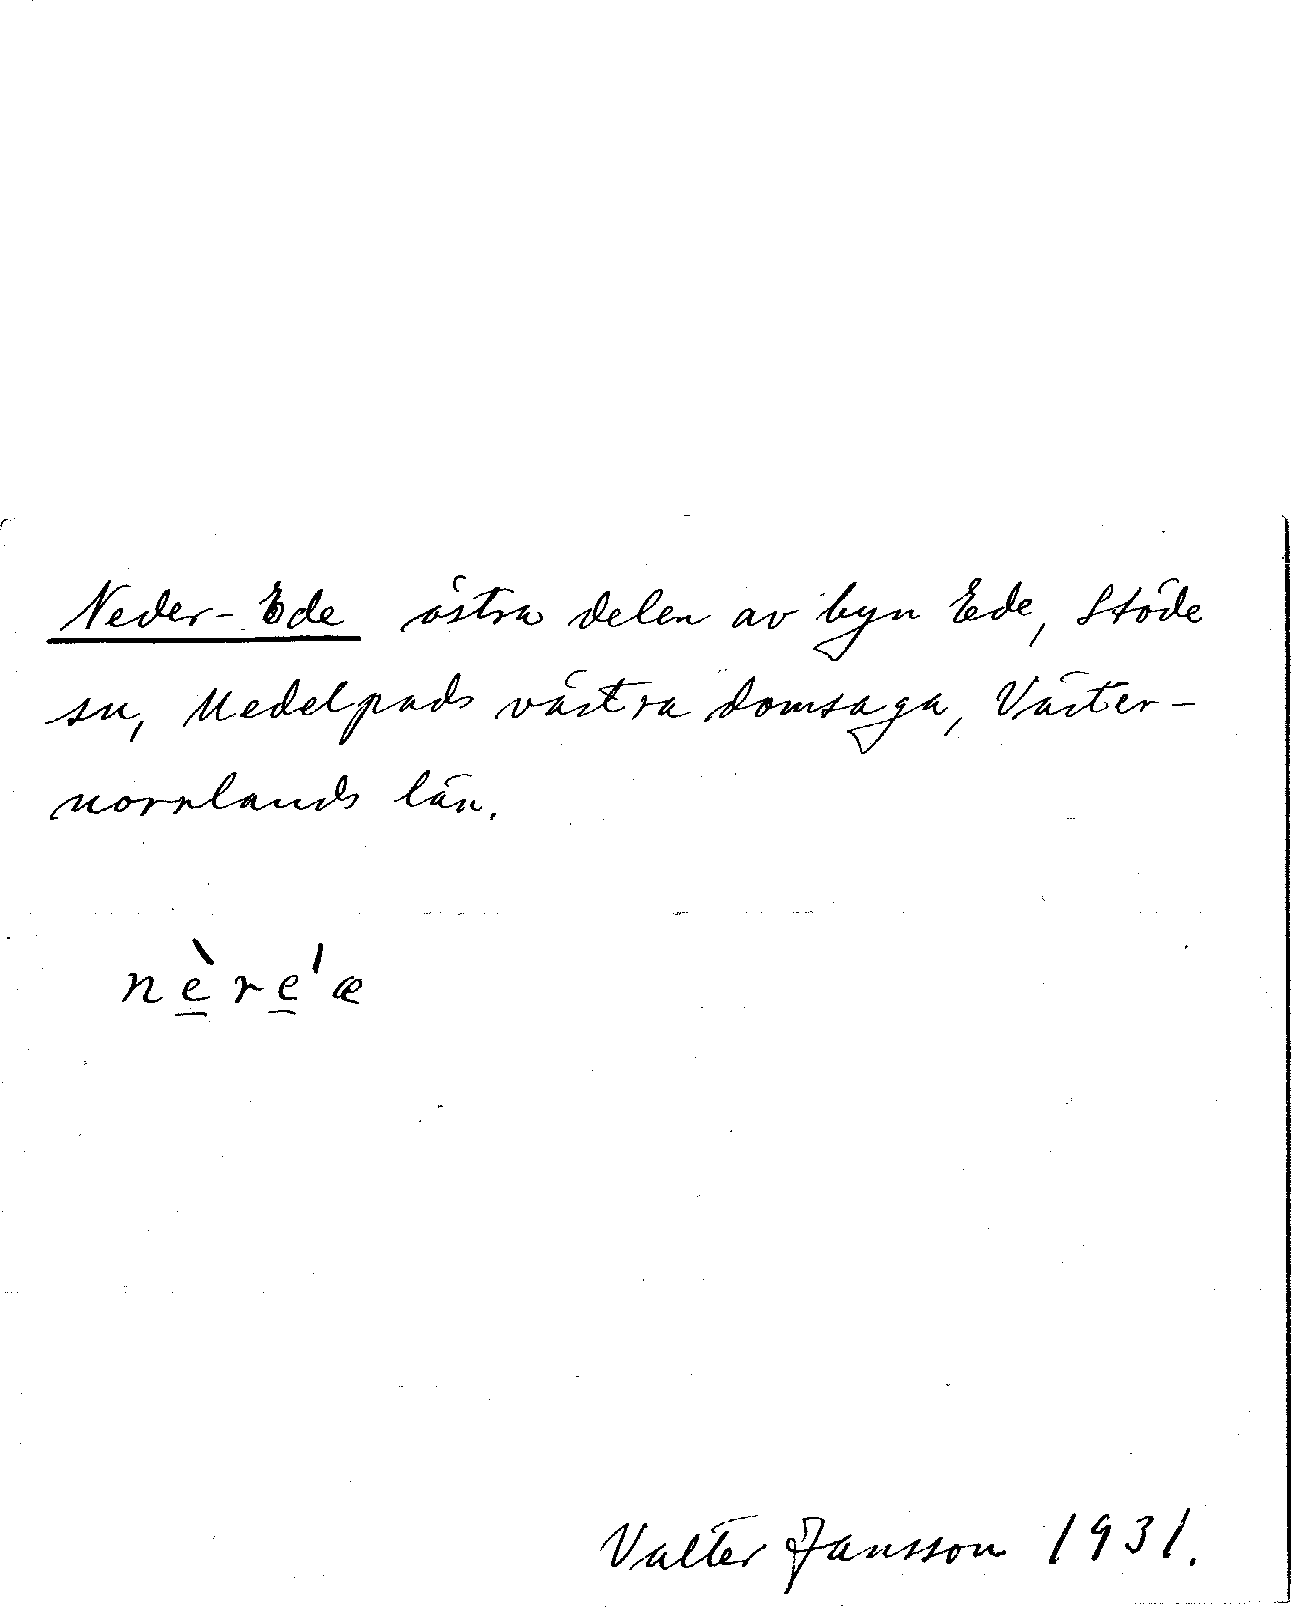 Neder-Ede östra delen av byn Ede, Stöde
sn, Medelpads västra domsaga, Väster-
norrlands län.
nè̲re̲'æ
Valter Jansson 1931.